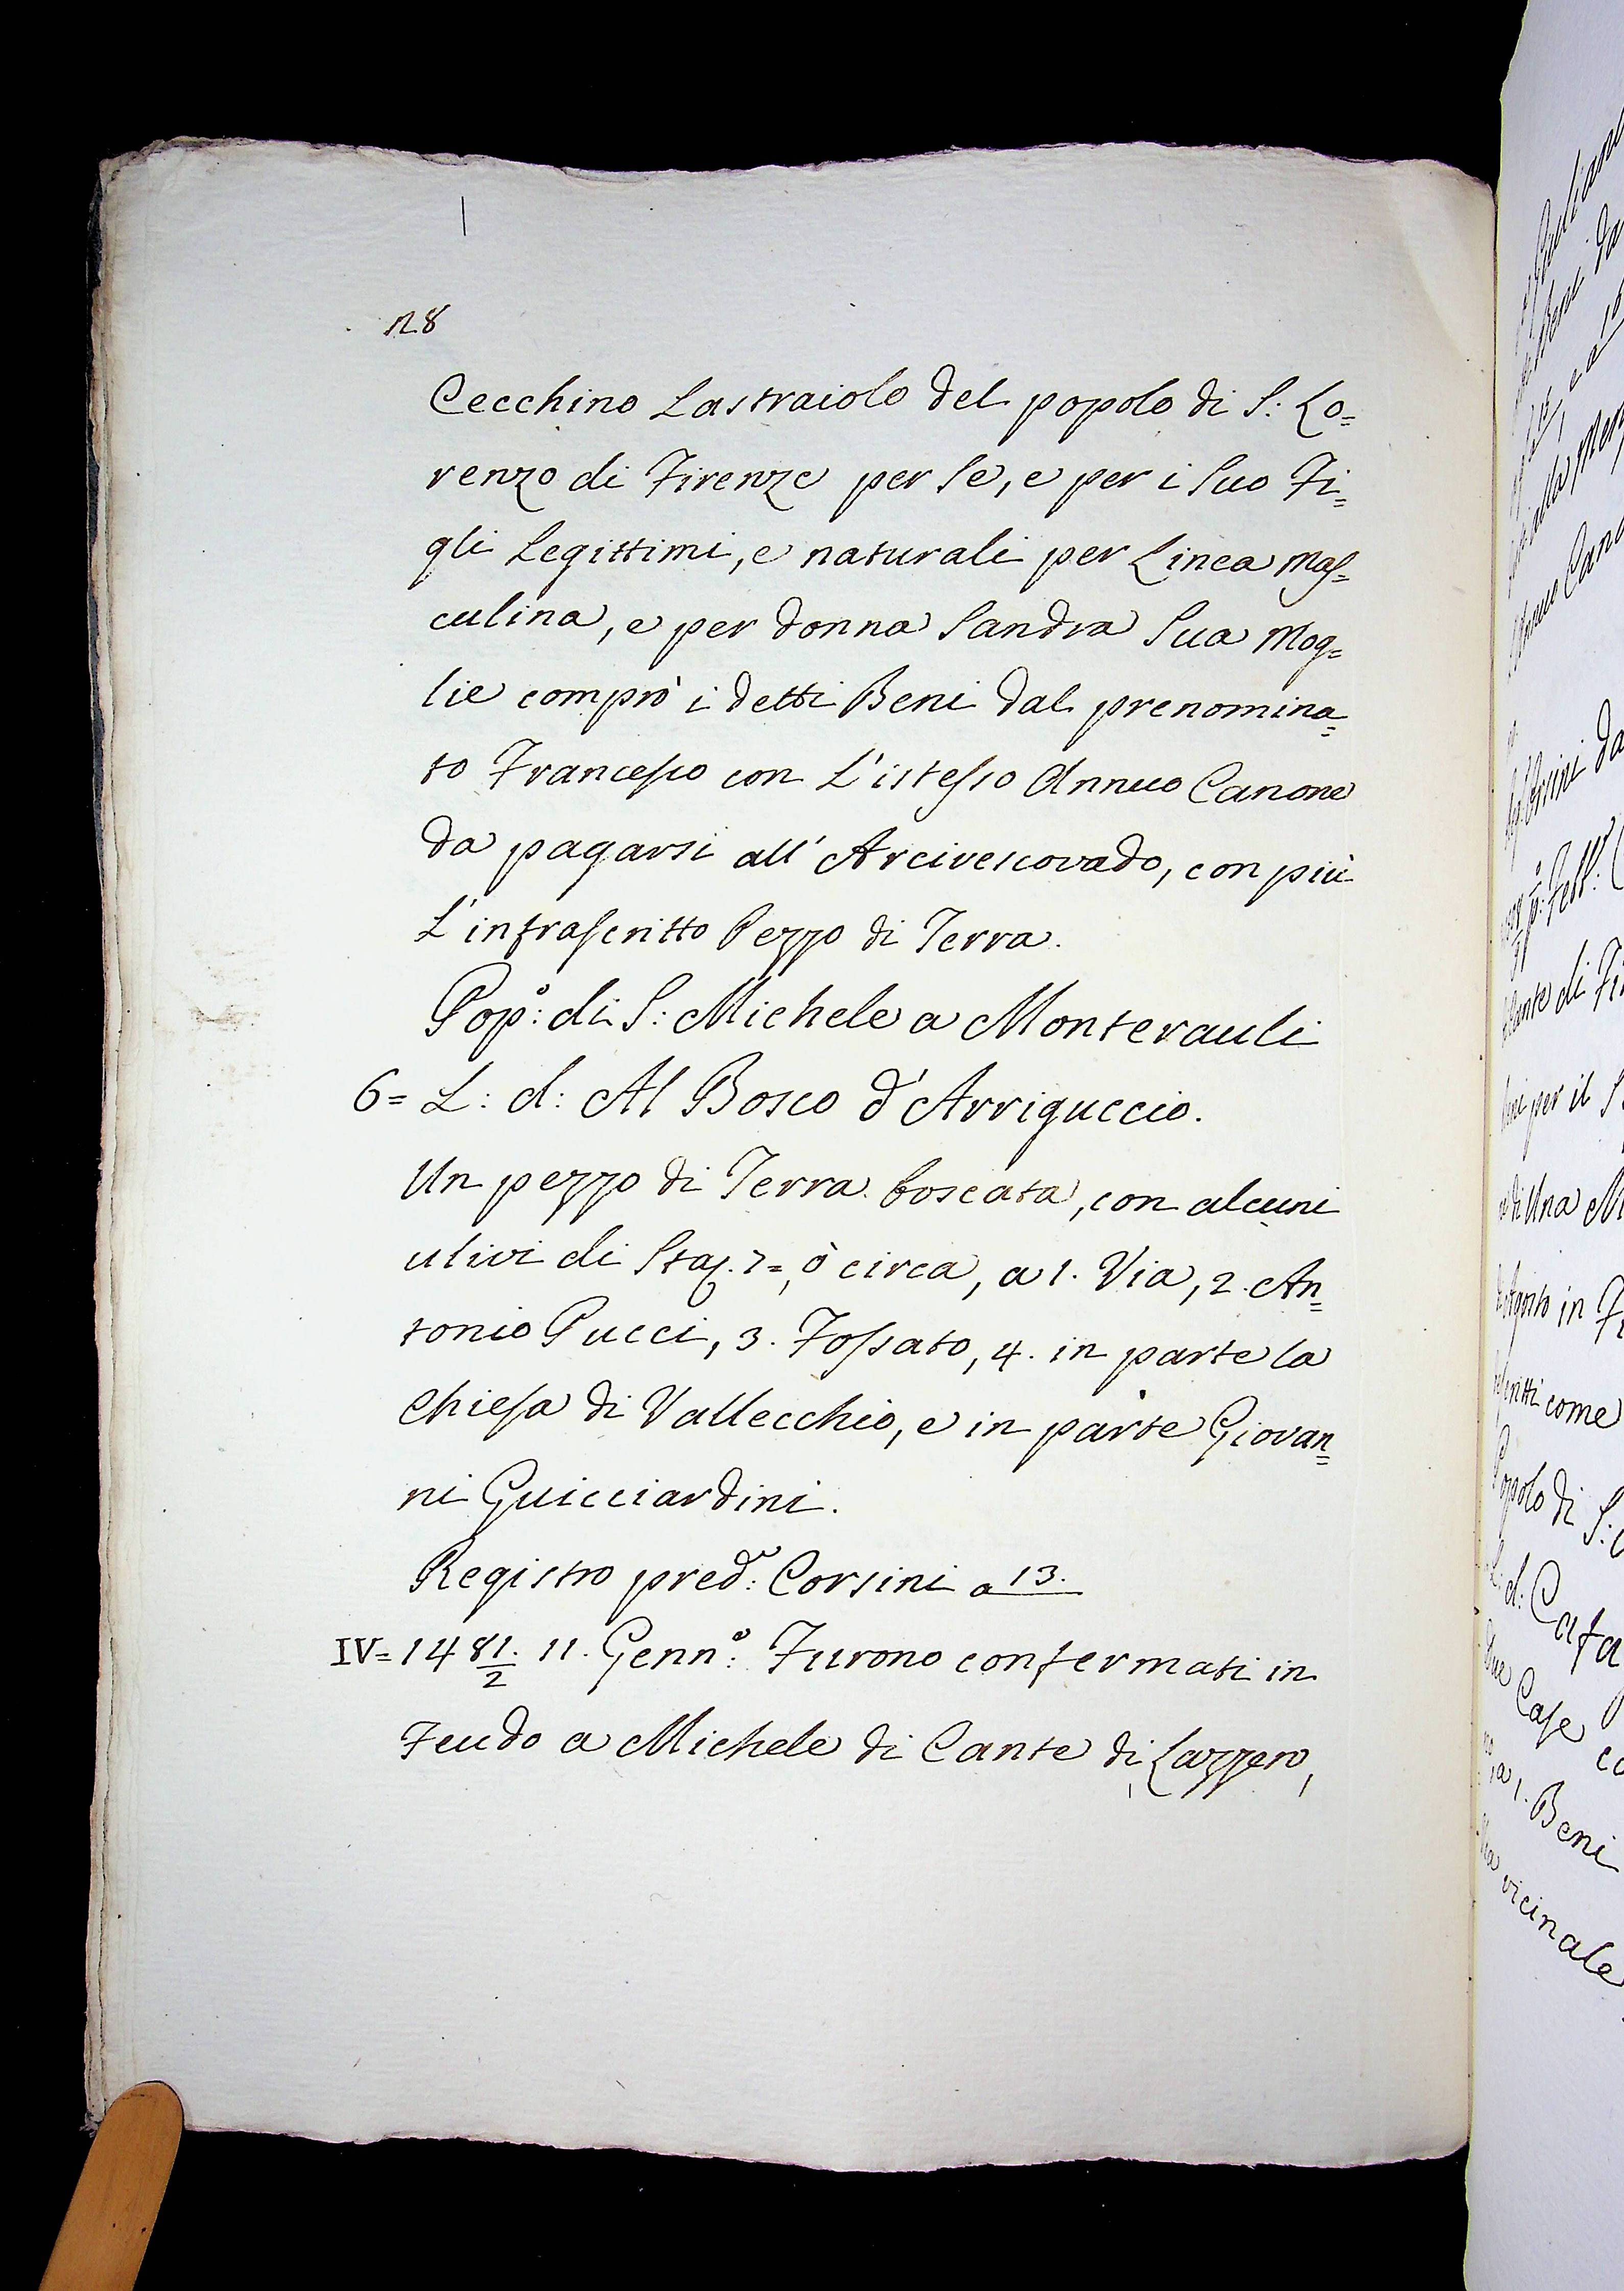 n. 8
Cecchino Lastraiolo del popolo di S: Lo=
renzo di Firenze per se, e per i suo Fi=
gli Legittimi, e naturali per Linea Mas=
culina, e per donna Sandra Sua Mog=
lie comprò i detti Beni dal prenomina=
to Francesco con L'istesso Annuo Canone
da pagarsi all' Arcivescovado, con più
L'infrascritto Pezzo di Terra.
Pop:º di S: Michele a Monterauli
6= L: d: Al Bosco d'Arriguccio.
Un pezzo di Terra boscata, con alcuni
ulivi di Staj. 7=, ò circa, a 1. Via, 2. An=
tonio Pucci, 3. Fossato, 4. in parte la
Chiesa di Vallecchio, e in parte Giovan=
ni Guicciardini.
Registro pred:º Corsini a 13.
IV= 1481/2. 11. Genn:º Furono confermati in
Feudo a Michele di Cante di Lazzero,
da
Febb:
di Una
Agosto in
come
Popolo di S:
d: Cafa
Due Case
a 1. Beni
vicinale